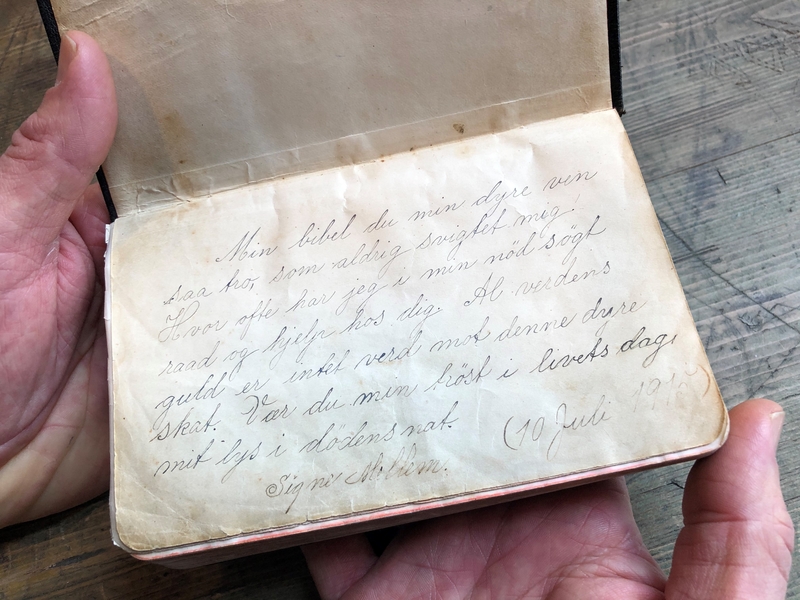 Min bibel du min dyre ven
saa tro, som aldrig svigtet mig!
Hvor ofte har jeg i min nöd sögt
raad og hjelp hos dig. Al verdens
guld er intet verd mot denne dyre
skat. Vær du min tröst i livets dag,
mit lys i dödens nat.
(10 Juli
Signe